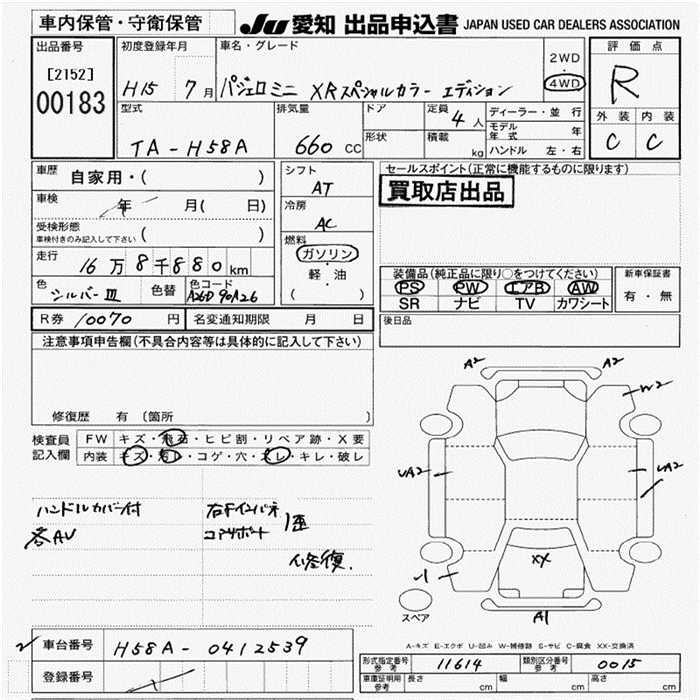 車内保管・守衛保管
JU 愛知 出品申込書 JAPAN USED CAR DEALERS ASSOCIATION
出品番号
[2152]
00183
初度登録年月
H15 7月
車名・グレード
パジェロミニ XRスペシャルカラー エディション
2WD
4WD
評価点
R
外装 内装
C C
型式
TA-H58A
排気量
660 CC
ドア
形状
定員 4人
積載 kg
ディーラー・並行
モデル年式 年
ハンドル 左・右
車歴 自家用・( )
車検 年 月( 日)
受検形態
車検付きのみ記入して下さい ( )
走行 16万8千880km
色 シルバーIII 色替 色コード A26D 90A26
シフト
AT
冷房
AC
燃料
ガソリン
・
軽・油
( )
セールスポイント(正常に機能するものに限ります)
買取店出品
装備品(純正品に限り○をつけてください)
PS PW エアB AW
SR ナビ TV カワシート
新車保証書
有・無
R券 10070 円 名変通知期限 月 日
後日品
注意事項申告欄(不具合内容等は具体的に記入して下さい)
修復歴 有〔箇所 〕
検査員記入欄
FW キズ・飛石・ヒビ割・リペア跡・X要
内装 キズ・汚レ・コゲ・穴・スレ・キレ・破レ
ハンドルカバー付
各AU
右Fインパネ
コアサポート 1歪
修復.
A2 A2
W2
UA2 UA2
XX
A1
スペア
A-キズ E-エクボ U-凹み W-補修跡 S-サビ C-腐食 XX-交換済
車台番号 H58A-0412539
登録番号
形式指定番号 参考 11614 類別区分番号 参考 0015
車庫証明用 参考 長さ cm 幅 cm 高さ cm